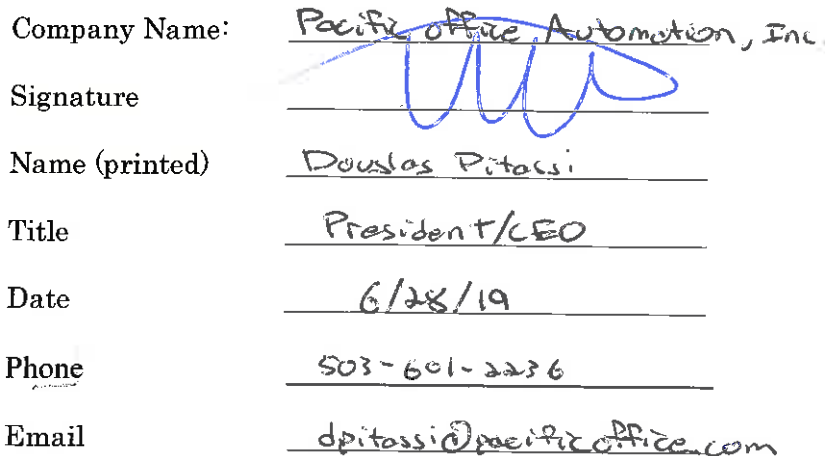 Company Name: Pacific office Automation, Inc.
Signature
Name (printed) Douglas Pitassi
Title President/CEO
Date 6/28/19
Phone 503-601-2236
Email dpitassi@pacificoffice.com